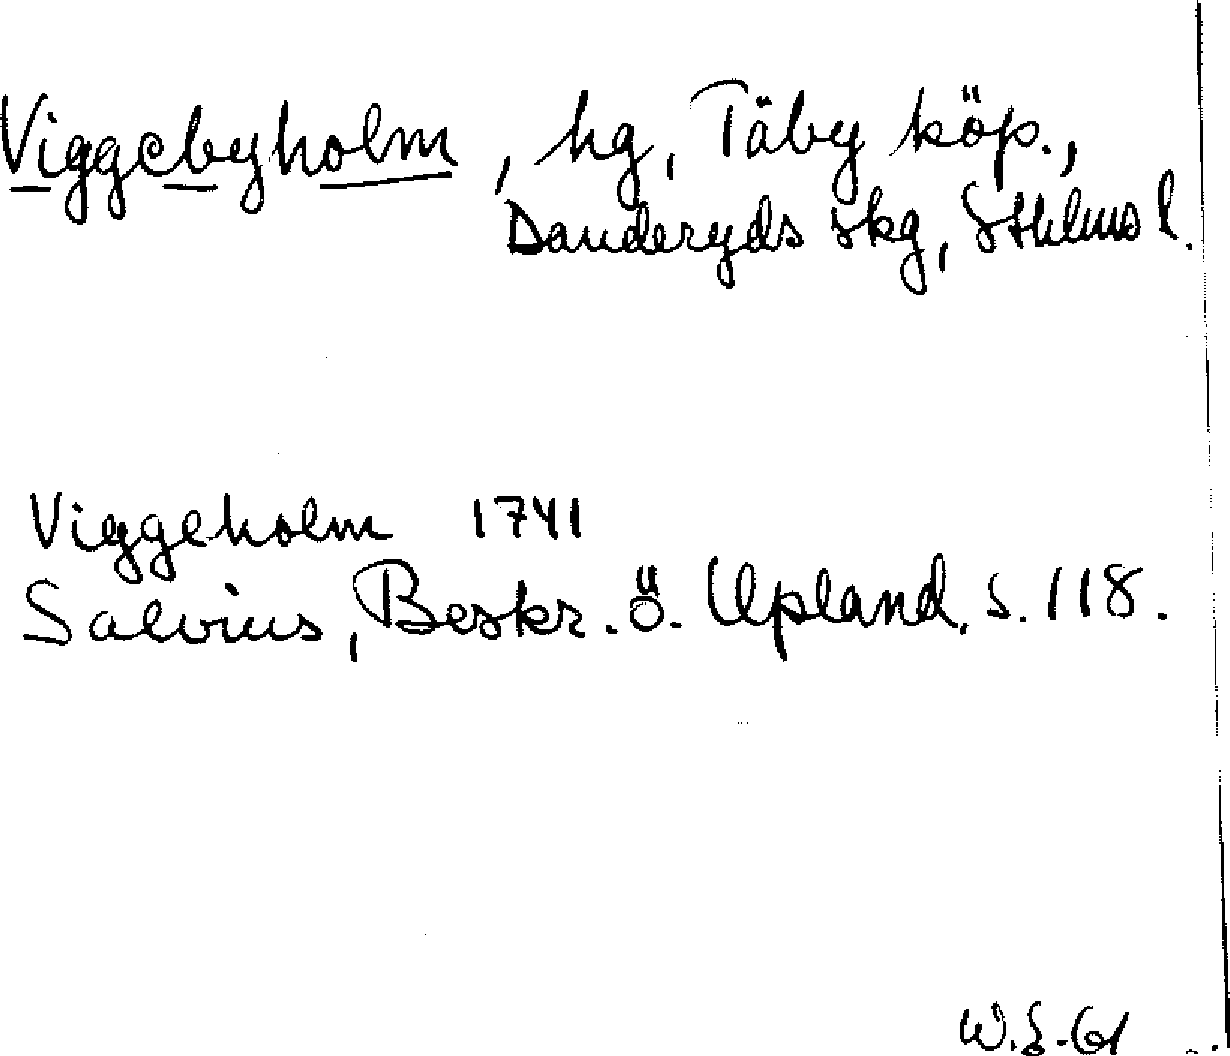 Viggebyholm, hg, Täby köp.,
Danderyds skg, Sthlms l.
Viggeholm 1741
Salvius, Beskr. ö. Upland, s. 118.